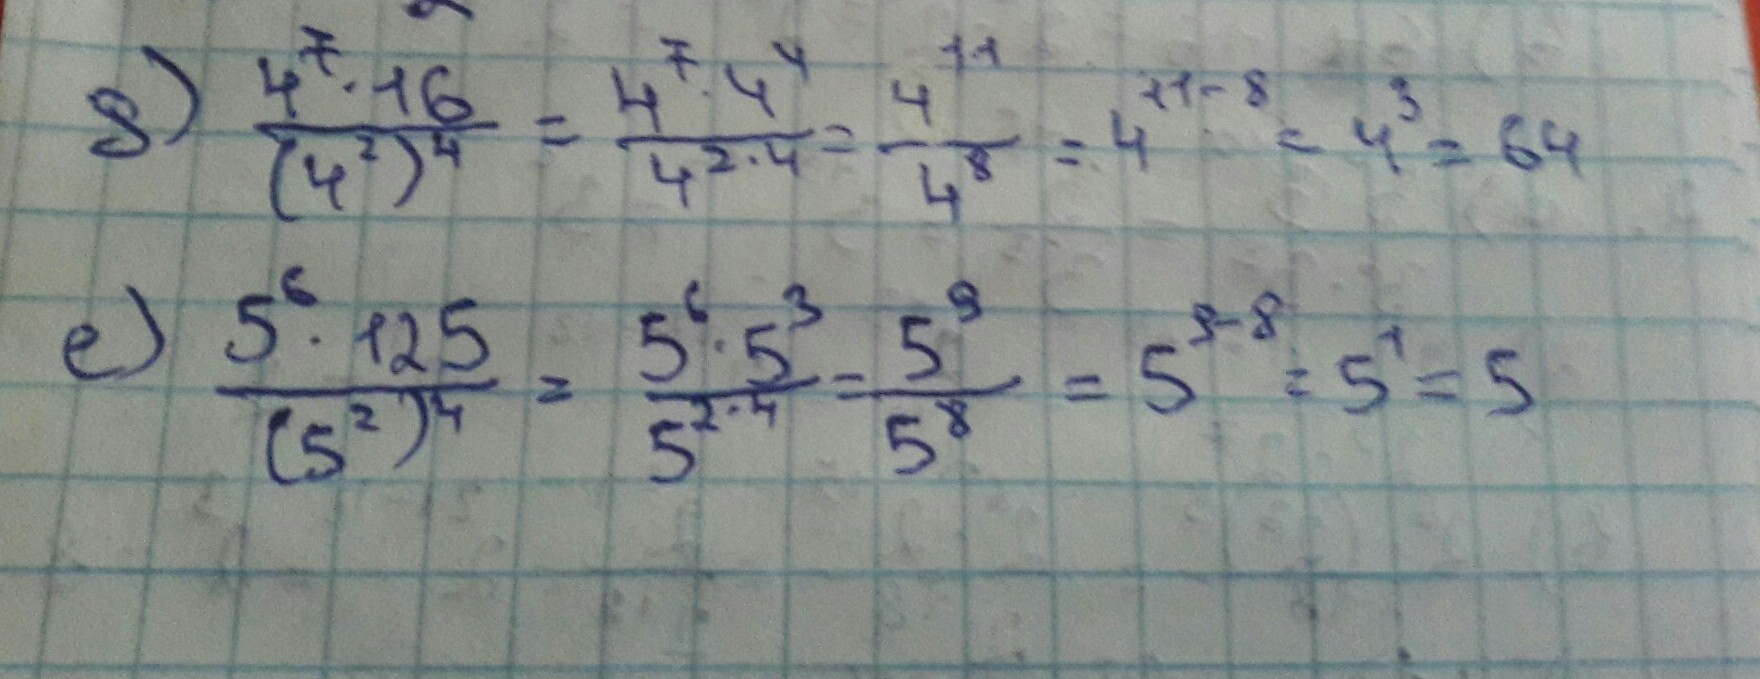 g) 4⁷·16/(4²)⁴ = 4⁷·4⁴/4²·⁴ = 4¹¹/4⁸ = 4¹¹⁻⁸ = 4³ = 64
e) 5⁶·125/(5²)⁴ = 5⁶·5³/5²·⁴ = 5⁹/5⁸ = 5⁹⁻⁸ = 5¹ = 5